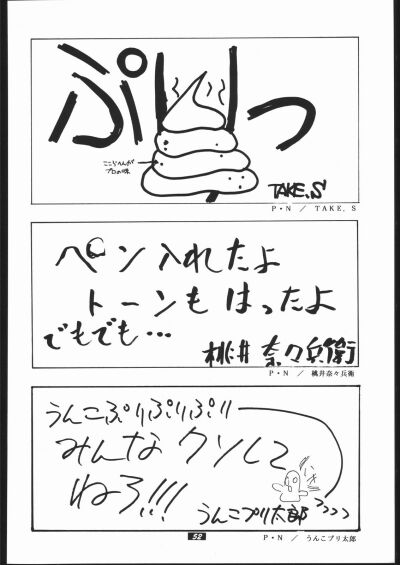 ぷりっ
ここらへんが
プロの味
TAKE.S
P・N ／ TAKE. S
ペン入れたよ
トーンもはったよ
でもでも…
桃井奈々兵衛
P・N ／ 桃井奈々兵衛
うんこぷりぷりぷり
みんなクソして
ねろ!!!
うんこプリ太郎
52
P・N ／ うんこプリ太郎